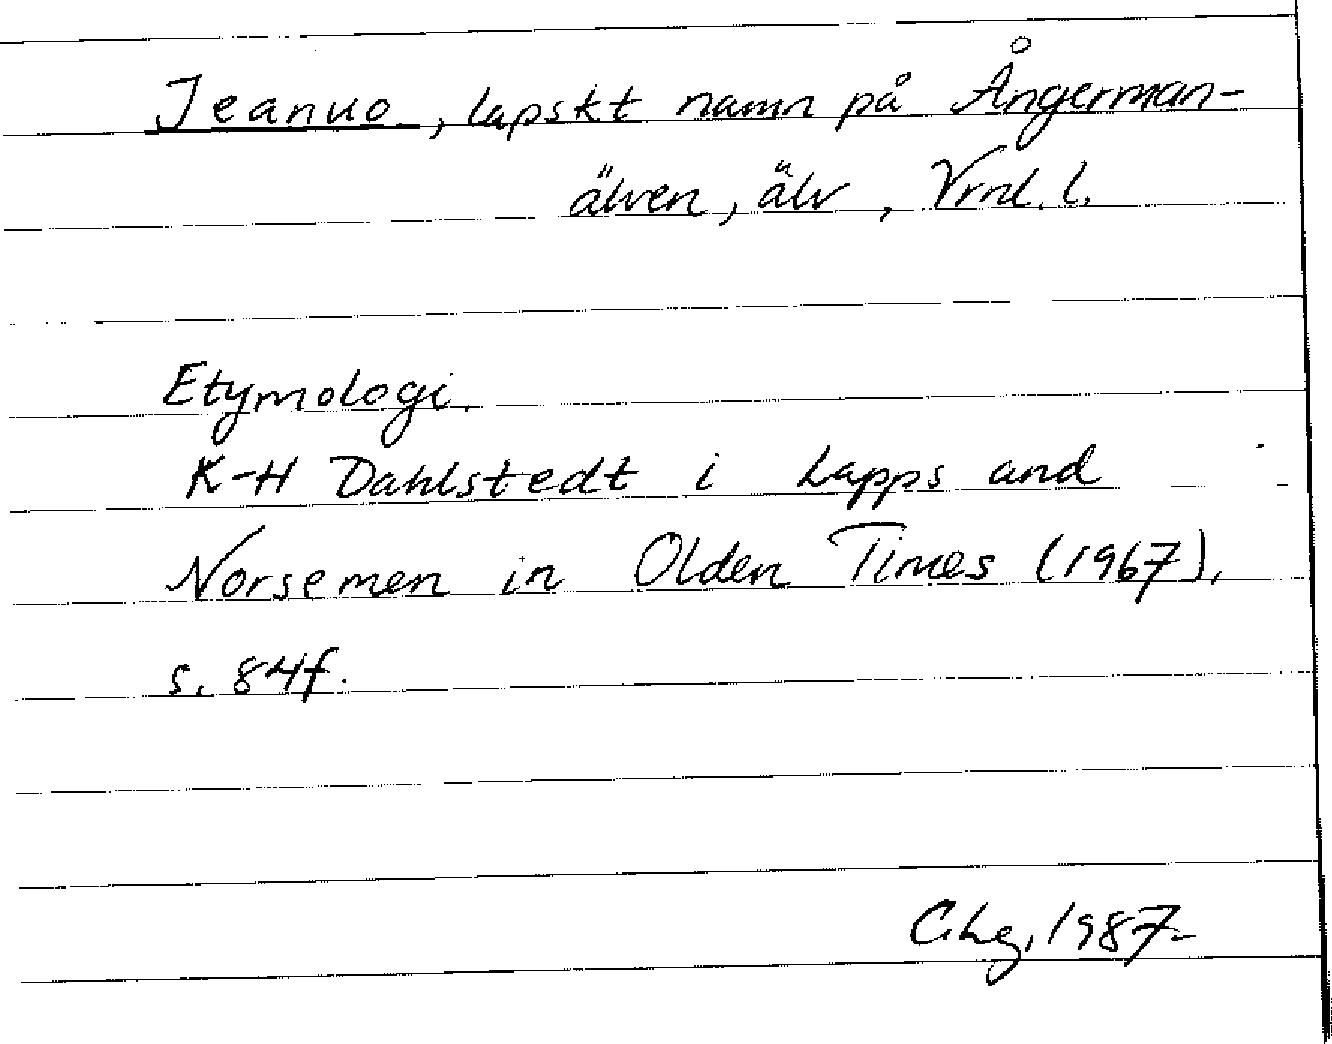 Jeanuo, lapskt namn på Ångerman-
älven, älv, Vrml. l.
Etymologi.
K-H Dahlstedt i Lapps and
Norsemen in Olden Times (1967),
s. 84f.
1987